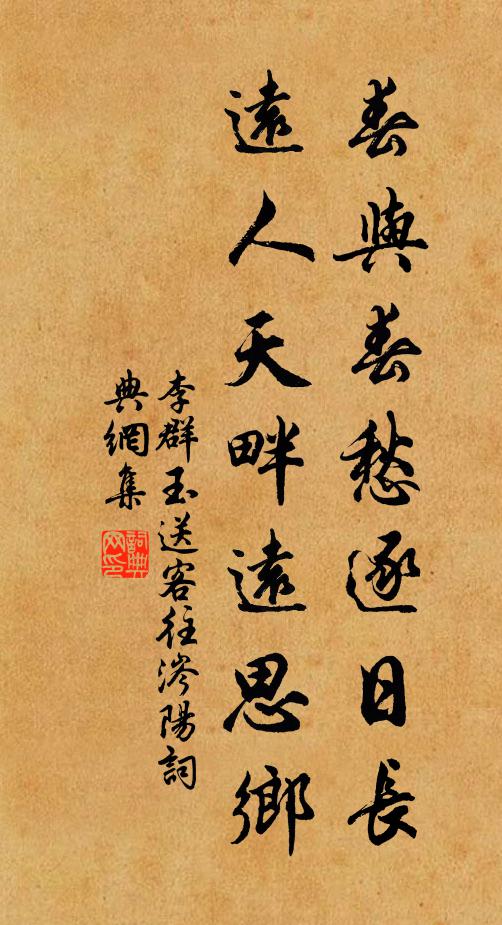 春與春愁逐日長
遠人天畔遠思鄉
李群玉送客往涔陽詞
典網集
詞典
网印